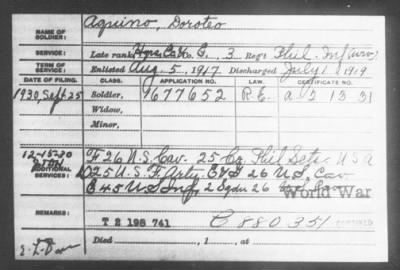 NAME OF SOLDIER: Aquino, Doroteo
SERVICE: Late rank, Co. E, 3 Reg't Phil. Inf
TERM OF SERVICE: Enlisted Aug. 5, 1917 Discharged July 1, 1919
DATE OF FILING. CLASS. APPLICATION NO. CERTIFICATE NO.
1930, Sept 25 Soldier, 1677652 R.E. a 2 13 31
Widow,
Minor,
12-15230
ADDITIONAL SERVICES: F 26 U.S. Cav. 25 Co. Phil Scts. U S A
D 25 U.S. F. Arty 26 U.S. Cav
45 U S Inf, 2 Sqdn 26
World War
REMARKS: T 2 198 741 C 880 351
Died , 1 , at